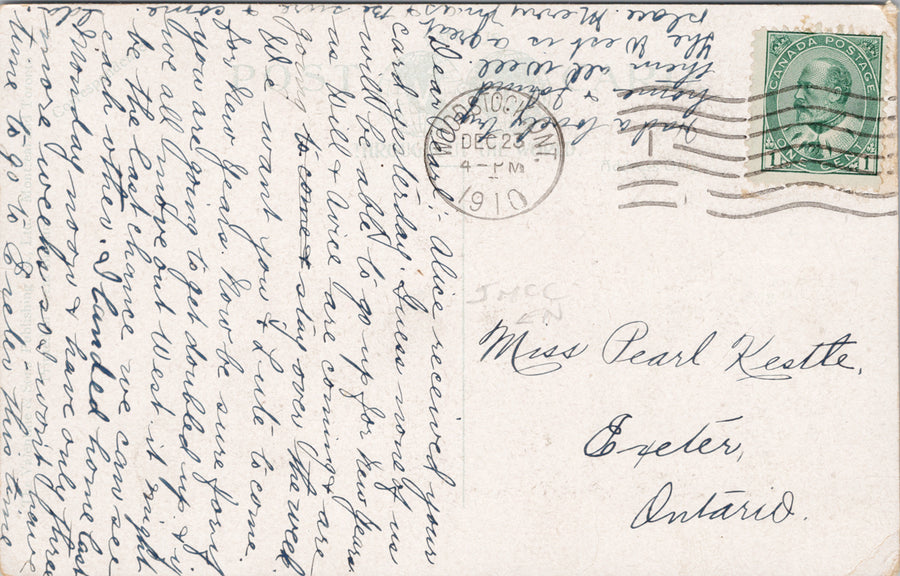 Dear Pearl:- Alice received your
card yesterday. Guess none of us
will be able to go up for New Years
us. Will & Alice are coming & are
going to come & stay over the week.
We want you & Lute to come
for New Years. Now be sure for if
you are going to get doubled up & if
we all move out West it might
be the last chance we can see
each other. I landed home last
Monday noon & have only three
more weeks so I won't have
time to go to Exeter this time
had a lovely trip
home & found
them all well.
The West is a great
place. Merry Xmas & be sure &
come.
Ida.
POST CARD
WOODSTOCK ONT.
DEC 23
4 - PM
1910
CANADA POSTAGE
1 ONE CENT 1
Miss Pearl Kestle,
Exeter,
Ontario.